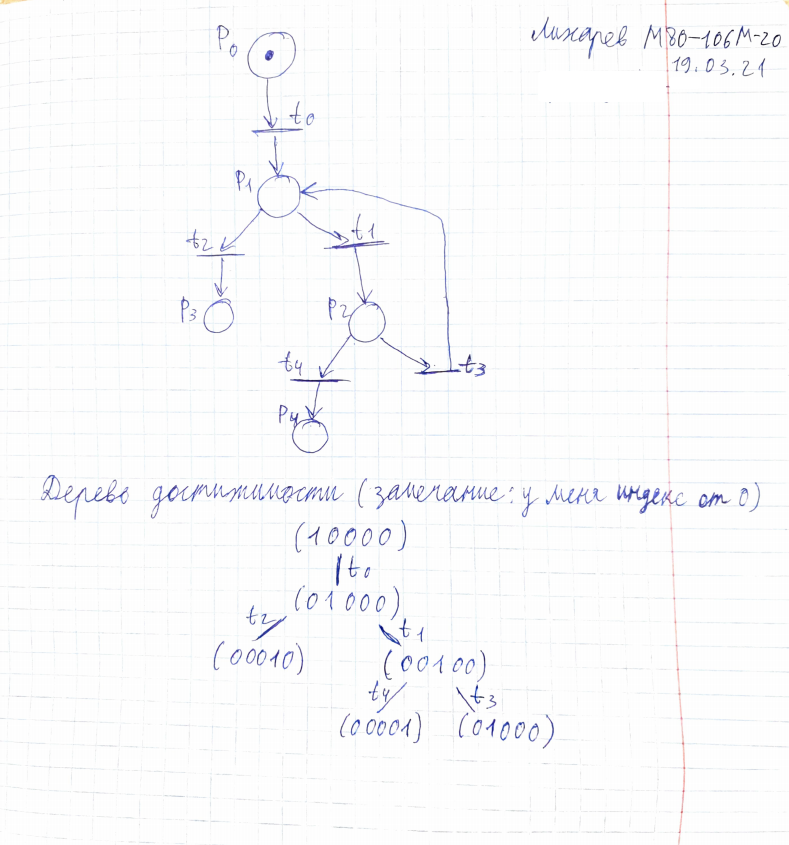 Лихарев М80-106М-20
19.03.21
P0
t0
P1
t2
t1
P3
P2
t4
t3
P4
Дерево достижимости (замечание: у меня индекс от 0)
(10000)
t0
(01000)
t2
t1
(00010)
(00100)
t4
t3
(00001)
(01000)